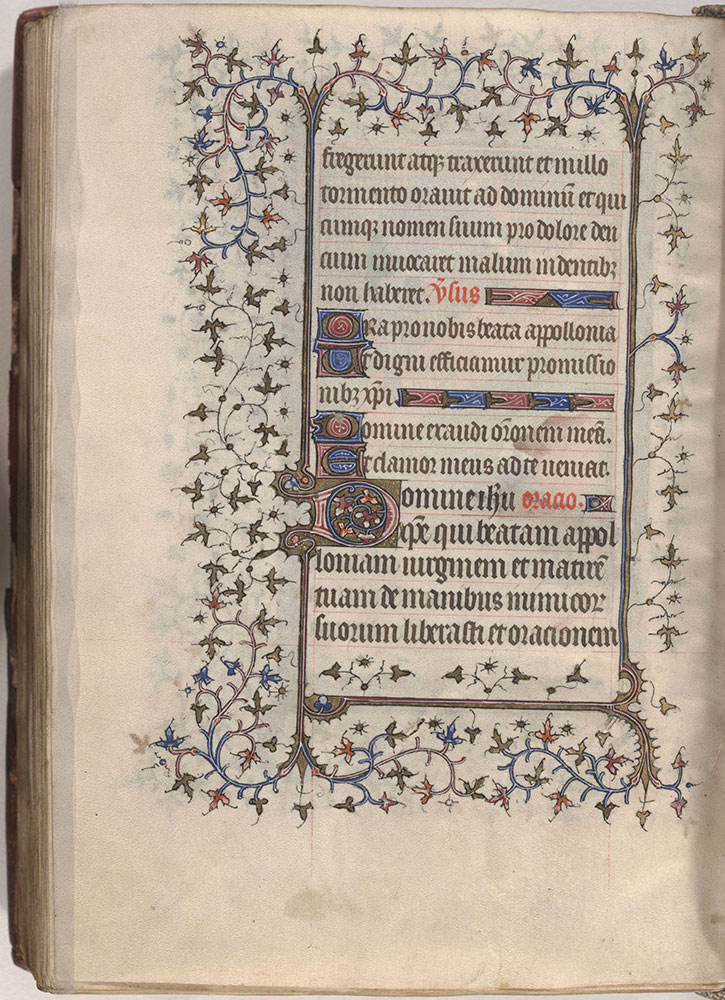 fregerunt atq; traxerunt et in illo
tormento orauit ad dominū et qui
cumq; nomen suum pro dolore den
cium inuocaret malum in dentib;
non haberet. v̄sus
Ora pro nobis beata appollonia
Et digni efficiamur promissio
nib; xp̄i.
Domine exaudi or̄onem meā.
Et clamor meus ad te ueniat.
Domine ihū oracio.
xp̄e qui beatam appol
loniam uirginem et martirē
tuam de manibus inimicor
suorum liberasti et oracionem